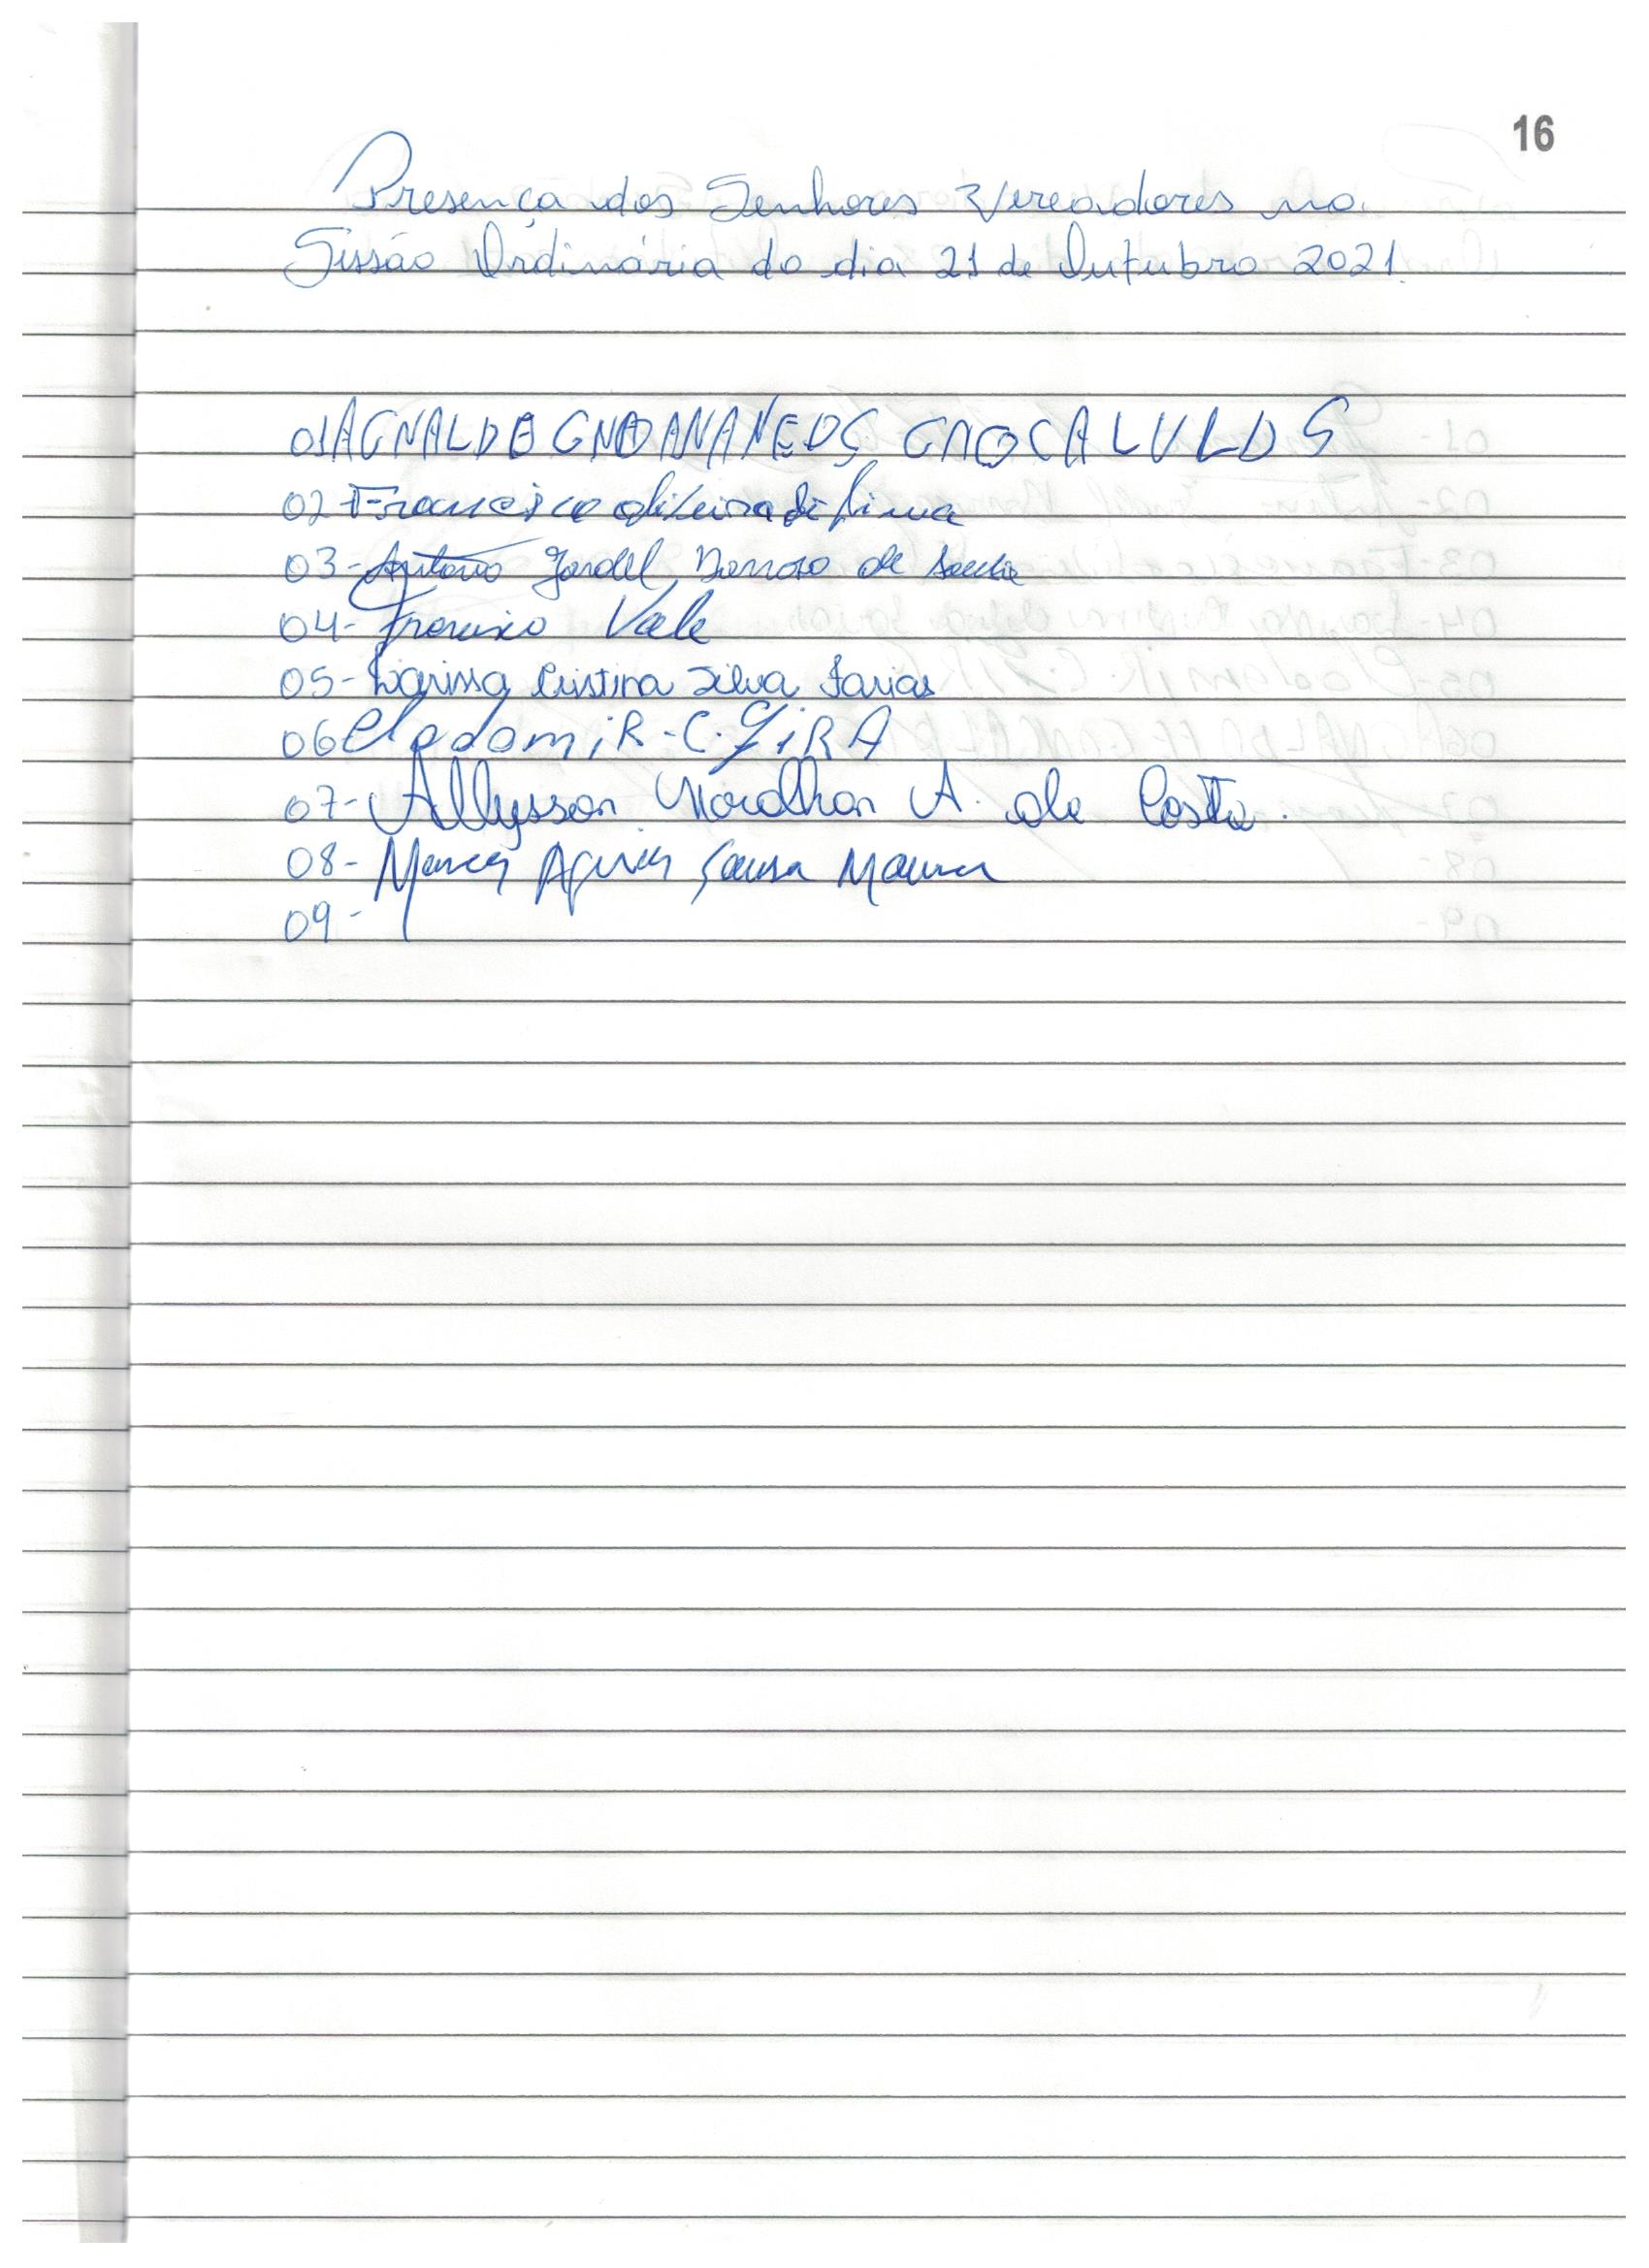 16
Presença dos Senhores Vereadores na
Sessão Ordinária do dia 21 de Outubro 2021.
01 AGNALDO
02 Francisco oliveira de Lima
03- Antonio Jardel Barroso de Sousa
04- Francisco Vale
05- Larissa Cristina Silva Farias
06 Clodomir - C. LiRA
07- Allysson A. da Costa.
08- Sousa Moura
09-